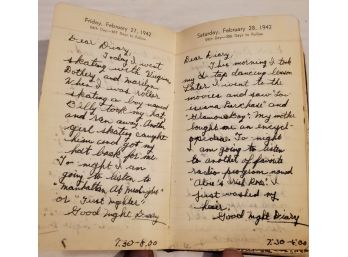 Friday, February 27, 1942
58th Day—307 Days to Follow
Dear Diary,
Today I went
skating with Virginia,
Dothey, and Marilyn.
When I was roller
skating a boy named
Billy took my hat
and ran away. Another
girl skating caught
him and got my
hat back for me.
To night I am
going to listen to
"Manhatten At Midnight"
or "First Nighter"
Good night Diary
7:30-8:00
Saturday, February 28, 1942
59th Day—306 Days to Follow
Dear Diary,
This morning I took
my tap dancing lesson
Later I went to the
moovies and saw "Lou
isiana Purchase" and
"Glamour Boy". My mother
bought me an encycl-
opeidea. To night
I am going to listen
to another of favorite
radio program named
"Abie's Irish Rose". I
first washed my
hair.
Good Night Diary
7:30-8:00